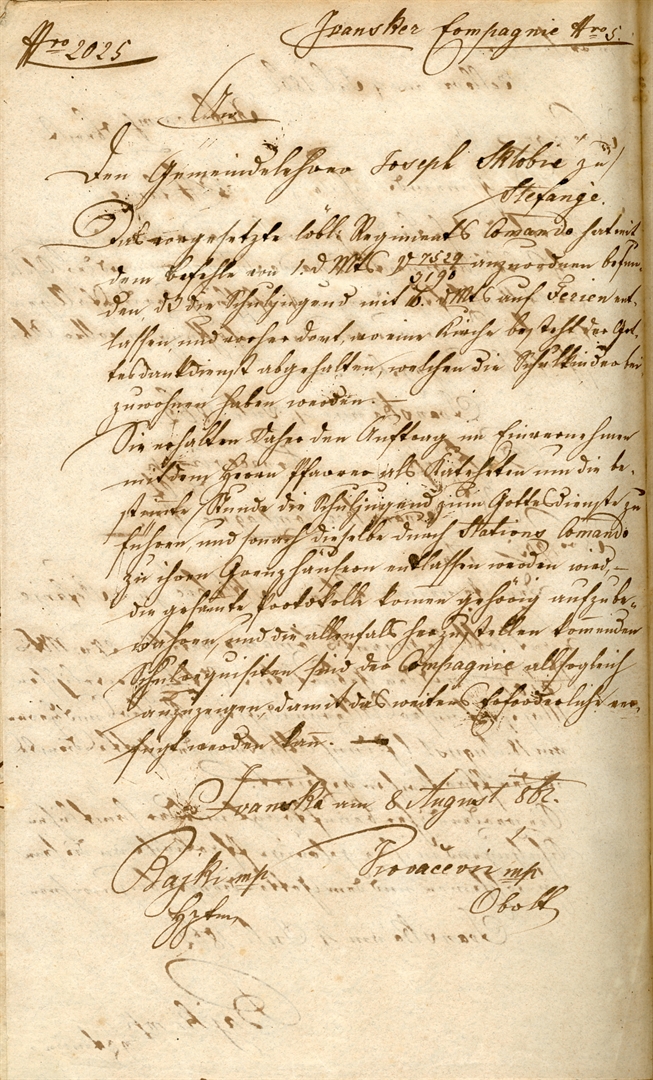 Nro 2025
Ivansker Compagnie Nro 5.
An
Den Gemeindelehrer Joseph Sklobić zu
Stefanje.
Das vorgesetzte löbl: Regiments Comando hat mit
dem Befehle vom 1. d Mts 7529 anzuordnen befun-
den, dß die Schuljugend mit 16. d Mts auf Ferien ent-
lassen, und vorher dort, wo eine Kirche besteht der Got-
tesdankdienst abgehalten, welchen die Schulkinder bei
zuwohnen haben werden. –
Sie erhalten daher den Auftrag im Einvernehmen
mit dem Herrn Pfarrer als Katecheten um die be-
stimte Stunde die Schuljugend zum Gottesdienste zu
führen, und sonach dieselbe durch Stations Comando
zu ihren Grenzhäusern entlassen werden wird, –
die gesamte Protokolle komen gehörig aufzube-
wahren, und die allenfalls herzustellen kommenden
Schulrequisiten sind der Compagnie allsogleich
anzuzeigen, damit das weiters Erforderliche ver-
fügt werden kan̄. –
Ivanska am 8 August 862.
Rajki mp
Hptm
Kovačević mp
Oboltt